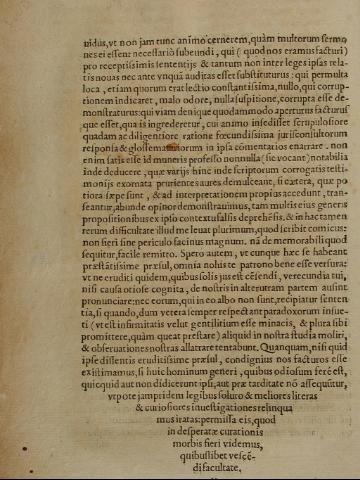 uidus, vt non jam tunc animo cernerem, quàm multorum sermo
nes ei essent necessariò subeundi, qui (quod nos eramus facturi)
pro receptissimis sententijs & tantum non inter leges ipsas rela-
tis nouas nec ante vnquã auditas esset substituturus: qui permulta
loca, etiam quorum erat lectio constantissima, nullo, qui corru-
ptionem indicaret, malo odore, nulla suspitione, corrupta esse de-
monstraturus: qui viam denique quodammodo aperturus
que esset, qua is ingrederetur, cui animo insedisset scrupulosiore
quadam ac diligentiore ratione fœcundissima jurisconsultorum
responsa & glossematiorum in ipsa cõmentarios enarrare. non
enim satis esse id muneris professo nonnulla (sic vocant) notabilia
inde deducere, quæ varijs hinc inde scriptorum corrogatis testi-
monijs exornata prurientes aures demulceant, si cætera, quæ po
tiora sæpe sunt, & ad interpretationem propius accedunt, tran-
seantur, abunde opinor demonstrauimus, tam multis eius generis
propositionibus ex ipso contextu falsis deprehẽsis, & in hac tamen
rerum difficultate illud me leuat plurimum, quod scribit comicus:
non fieri sine periculo facinus magnum. nã de memorabili quod
sequitur, facile remitto. Spero autem, vt cunque hæc se habeant
præstãtissime præsul, omnia nobis te patrono bene esse versura:
vt ne eruditi quidem, quibus solis jus est cẽsendi, verecundia tui,
nisi causa otiose cognita, de nostris in alterutram partem ausint
pronunciare: nec eorum, qui in eo albo non sunt, recipiatur senten
tia, si quando, dum vetera semper respectant paradoxorum insue-
ti (vt est infirmitatis velut gentilitium esse minacis, & plura sibi
promittere, quàm queat præstare) aliquid in nostra studia moliri,
& obseruationes nostras allatrare tentabunt. Quanquam, nisi quid
ipse dissentis eruditissime præsul, condignius nos facturos esse
existimamus, si huic hominum generi, quibus odiosum ferè est,
quicquid aut non didicerunt ipsi, aut præ tarditate nõ assequutur,
vtpote jampridem legibus soluto & meliores literas
& curiosiores inuestigationes relinqua
mus iratas: permissa eis, quod
in desperatæ curationis
morbis fieri videmus,
quibuslibet vescẽ-
di facultate,